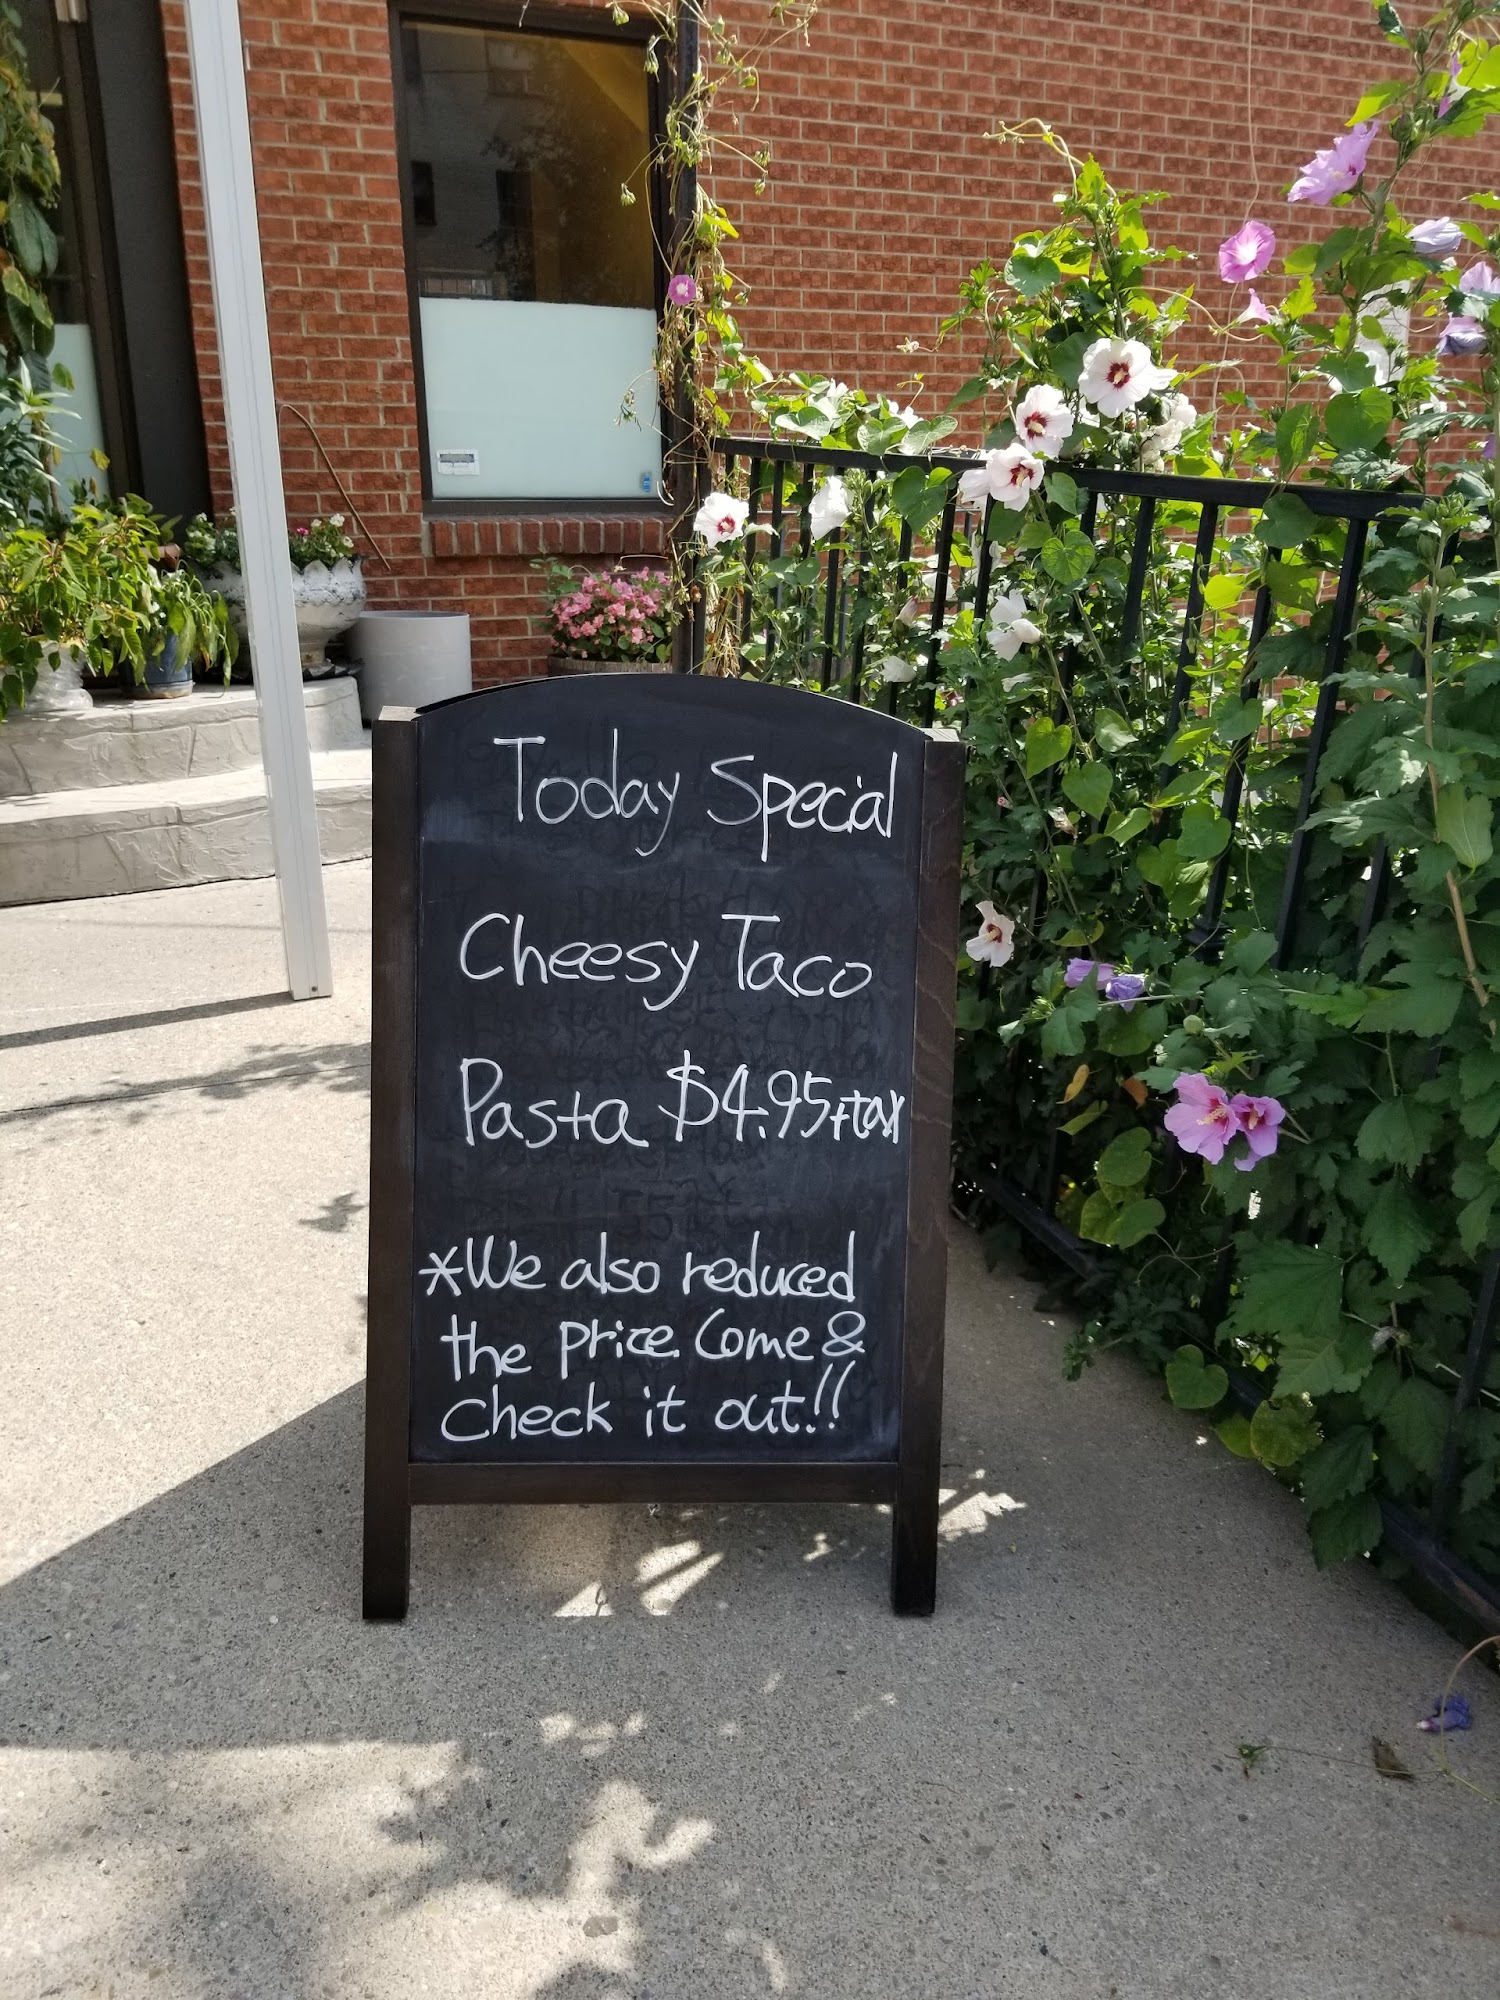 Today Special
Cheesy Taco
Pasta $4.95+tax
*We also reduced
the price. Come &
check it out!!